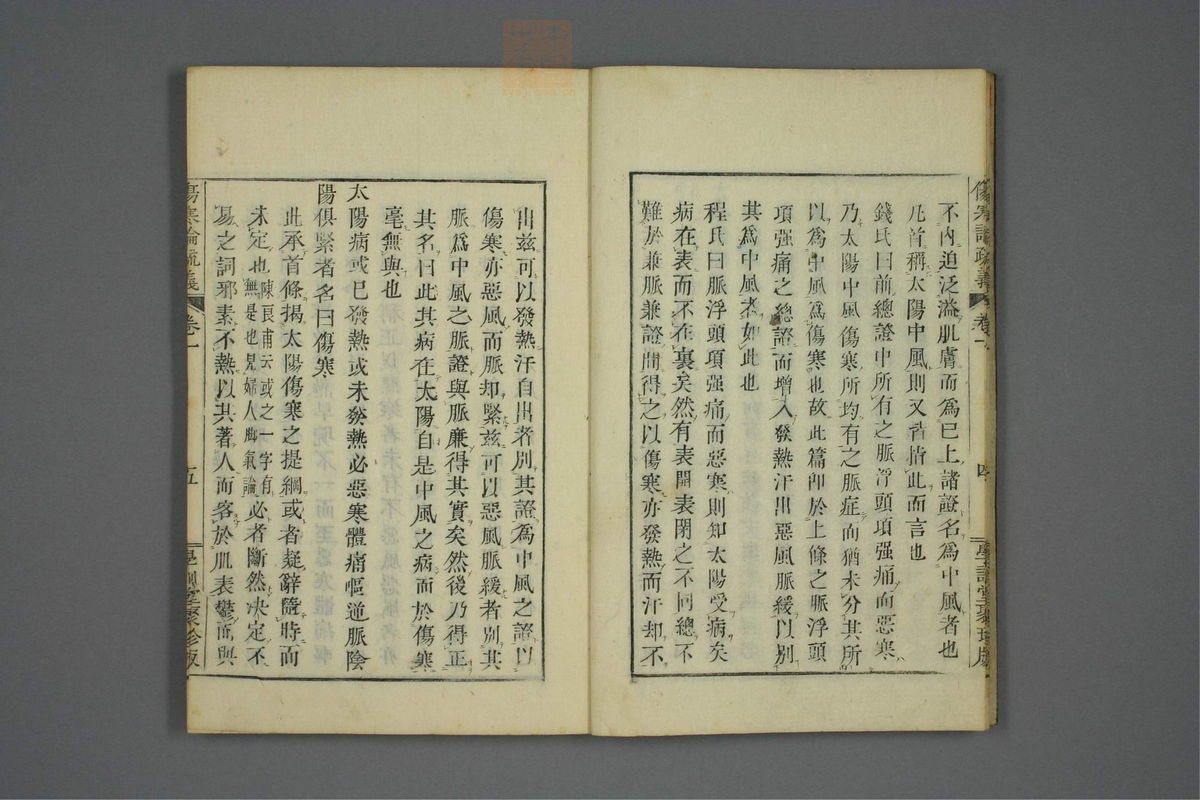 傷寒論疏義 卷一 四
不內迫泛溢肌膚而爲已上諸證名爲中風者也
凡首稱太陽中風則又皆指此而言也
錢氏曰前總證中所有之脈浮頭項强痛而惡寒
乃太陽中風傷寒所均有之脈症而猶未分其所
以爲中風爲傷寒也故此篇卽於上條之脈浮頭
項强痛之總證而增入發熱汗出惡風脈緩以別
其爲中風者如此也
程氏曰脈浮頭項强痛而惡寒則知太陽受病矣
病在表而不在裏矣然有表開表閉之不同總不
難於兼脈兼證間得之以傷寒亦發熱而汗却不
出兹可以發熱汗自出者別其證爲中風之證以
傷寒亦惡風而脈却緊兹可以惡風脈緩者別其
脈爲中風之脈證與脈廉得其實矣然後乃得正
其名曰此其病在太陽自是中風之病而於傷寒
毫無與也
太陽病或已發熱或未發熱必惡寒體痛嘔逆脈陰
陽俱緊者名曰傷寒
此承首條揭太陽傷寒之提綱或者疑辭隨時而
未定也陳良甫云或之一字有無是也見婦人脚氣論必者斷然决定不
易之詞邪素不熱以其著人而客於肌表鬱而與
傷寒論疏義 卷一 五 學訓堂聚珍版